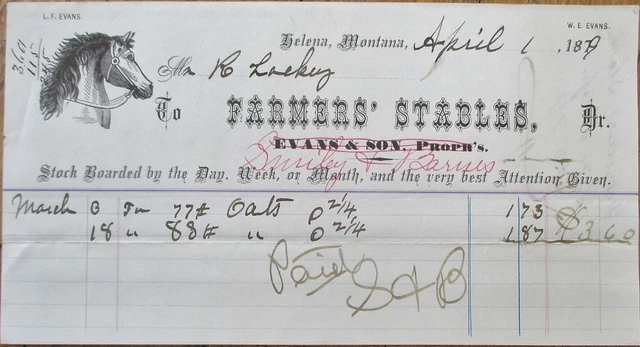 L. F. EVANS.
W. E. EVANS.
Helena, Montana, April 1, 1879
Mr R Lockey
To FARMERS' STABLES, Dr.
EVANS & SON, PROPR'S.
Smiley & Barnes
Stock Boarded by the Day, Week, or Month, and the very best Attention Given.
March 3 To 77# Oats @ 2 1/4 1 73
18 " 88# " @ 2 1/4 1 87 $3.60
Paid S & B